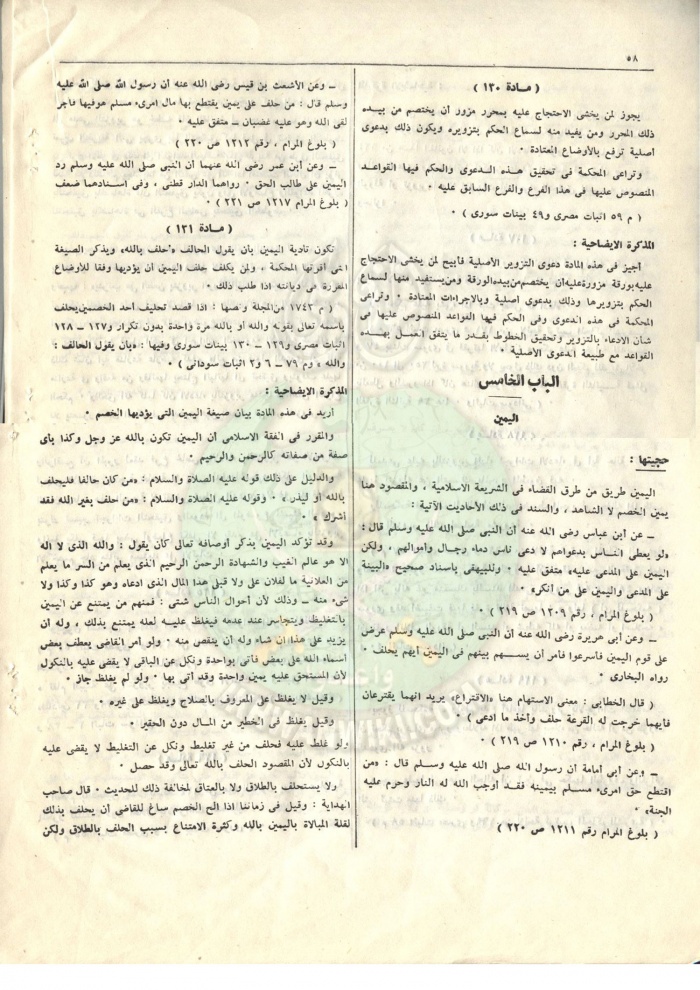 ٥٨
( مادة ١٣٠ )
يجوز لمن يخشى الاحتجاج عليه بمحرر مزور أن يختصم من بيده
ذلك المحرر ومن يفيد منه لسماع الحكم بتزويره ويكون ذلك بدعوى
أصلية ترفع بالأوضاع المعتادة ٠
وتراعى المحكمة فى تحقيق هذه الدعوى والحكم فيها القواعد
المنصوص عليها فى هذا الفرع والفرع السابق عليه ٠
( م ٥٩ اثبات مصرى و٤٩ بينات سورى )
المذكرة الايضاحية :
أجيز فى هذه المادة دعوى التزوير الأصلية فأبيح لمن يخشى الاحتجاج
عليه بورقة مزورة عليه أن يختصم من بيده الورقة ومن يستفيد منها لسماع
الحكم بتزويرها وذلك بدعوى أصلية وبالاجراءات المعتادة ٠ وتراعى
المحكمة فى هذه الدعوى وفى الحكم فيها القواعد المنصوص عليها فى
شأن الادعاء بالتزوير وتحقيق الخطوط بقدر ما يتفق العمل بهذه
القواعد مع طبيعة الدعوى الأصلية ٠
الباب الخامس
اليمين
حجيتها :
اليمين طريق من طرق القضاء فى الشريعة الاسلامية ، والمقصود هنا
يمين الخصم لا الشاهد ، والسند فى ذلك الأحاديث الآتية :
ــ عن ابن عباس رضى الله عنه أن النبى صلى الله عليه وسلم قال :
«لو يعطى الناس بدعواهم لا دعى ناس دماء رجال وأموالهم ، ولكن
اليمين على المدعى عليه» متفق عليه ٠ وللبيهقى باسناد صحيح «البينة
على المدعى واليمين على من أنكر» ٠
( بلوغ المرام ، رقم ١٢٠٩ ص ٢١٩ )
ــ وعن أبى هريرة رضى الله عنه أن النبى صلى الله عليه وسلم عرض
على قوم اليمين فأسرعوا فأمر أن يسهم بينهم فى اليمين أيهم يحلف ٠
رواه البخارى ٠
( قال الخطابى : معنى الاستهام هنا «الاقتراع» يريد انهما يقترعان
فأيهما خرجت له القرعة حلف وأخذ ما ادعى )
( بلوغ المرام ، رقم ١٢١٠ ص ٢١٩ )
ــ وعن أبى أمامة أن رسول الله صلى الله عليه وسلم قال : «من
اقتطع حق امرىء مسلم بيمينه فقد أوجب الله له النار وحرم عليه
الجنة»
( بلوغ المرام رقم ١٢١١ ص ٢٢٠ )
ــ وعن الأشعث بن قيس رضى الله عنه أن رسول الله صلى الله عليه
وسلم قال : من حلف على يمين يقتطع بها مال امرىء مسلم هوفيها فاجر
لقى الله وهو عليه غضبان ــ متفق عليه ٠
( بلوغ المرام ، رقم ١٢١٢ ص ٢٢٠ )
ــ وعن أبن عمر رضى الله عنهما أن النبى صلى الله عليه وسلم رد
اليمين على طالب الحق ٠ رواهما الدار قطنى ، وفى اسنادهما ضعف
( بلوغ المرام ١٢١٧ ص ٢٢١ ) ٠
( مادة ١٣١ )
تكون تادية اليمين بان يقول الحالف «احلف بالله» ويذكر الصيغة
التى أقرتها المحكمة ، ولمن يكلف حلف اليمين أن يؤديها وفقا للأوضاع
المقررة فى ديانته اذا طلب ذلك ٠
( م ١٧٤٣ من المجلة ونصها : اذا قصد تحليف أحد الخصمين يحلف
باسمه تعالى بقوله والله أو بالله مرة واحدة بدون تكرار و١٢٧ ــ ١٢٨
اثبات مصرى و١٢٩ ــ ١٣٠ بينات سورى وفيها : «بان يقول الحالف :
والله » وم ٧٩ ــ ٦ و٢ اثبات سودانى ) ٠
المذكرة الايضاحية :
أريد فى هذه المادة بيان صيغة اليمين التى يؤديها الخصم ٠
والمقرر فى الفقة الاسلامى أن اليمين تكون بالله عز وجل وكذا باى
صفة من صفاته كالرحمن والرحيم ٠
والدليل على ذلك قوله عليه الصلاة والسلام : «من كان حالفا فليحلف
بالله أو ليذر » ٠ وقوله عليه الصلاة والسلام : «من حلف بغير الله فقد
أشرك » ٠
وقد تؤكد اليمين بذكر أوصافه تعالى كأن يقول : والله الذى لا اله
الا هو عالم الغيب والشهادة الرحمن الرحيم الذى يعلم من السر ما يعلم
من العلانية ما لفلان على ولا قبلى هذا المال الذى ادعاه وهو كذا وكذا ولا
شىء منه ــ وذلك لأن أحوال الناس شتى : فمنهم من يمتنع عن اليمين
بالتغليظ ويتجاسر عند عدمه فيغلظ عليه لعله يمتنع بذلك ، وله أن
يزيد على هذا ان شاء وله أن ينقص منه ٠ ولو أمر القاضى بعطف بعض
أسماء الله على بعض فأتى بواحدة ونكل عن الباقى لا يقضى عليه بالنكول
لأن المستحق عليه يمين واحدة وقد أتى بها ٠ ولو لم يغلظ جاز ٠
وقيل لا يغلظ على المعروف بالصلاح ويغلظ على غيره ٠
وقيل يغلظ فى الخطير من المال دون الحقير ٠
ولو غلظ عليه فحلف من غير تغليظ ونكل عن التغليظ لا يقضى عليه
بالنكول لأن المقصود الحلف بالله تعالى وقد حصل ٠
ولا يستحلف بالطلاق ولا بالعتاق لمخالفة ذلك للحديث ٠ قال صاحب
الهداية : وقيل فى زماننا اذا الح الخصم ساغ للقاضى أن يحلف بذلك
لقلة المبالاة باليمين بالله وكثرة الامتناع بسبب الحلف بالطلاق ولكن